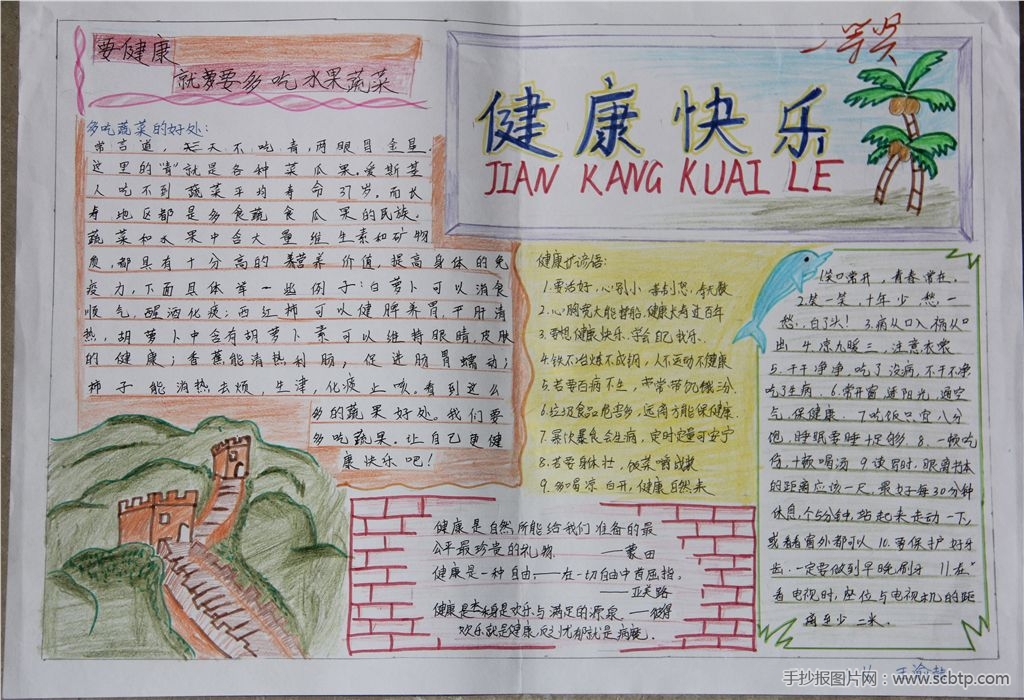 一等奖
要健康
就要多吃水果蔬菜
健康快乐
JIAN KANG KUAI LE
多吃蔬菜的好处:
常言道,三天不吃青,两眼冒金星.
这里的"青"就是各种菜瓜果.爱斯基
人吃不到蔬菜平均寿命37岁,而长
寿地区都是多食蔬食瓜果的民族.
蔬菜和水果中含大量维生素和矿物
质,都具有十分高的营养价值,提高身体的免
疫力,下面具体举一些例子:白萝卜可以消食
顺气,醒酒化痰;西红柿可以健脾养胃,平肝清
热,胡萝卜中含有胡萝卜素可以维持眼睛,皮肤
的健康;香蕉能清热利肠,促进肠胃蠕动;
柿子能清热去烦,生津,化痰止咳.看到这么
多的蔬果好处。我们要
多吃蔬果.让自己更健
康快乐吧!
健康 谚语:
1.要活好,心别小
2.心胸宽大能撑船,健康长寿过百年
3.要想健康快乐.学会自己找乐.
4.铁不冶炼不成钢,人不运动不健康
5.若要百病不生,常带饥饿三分
6.垃圾食品危害多,远离方能保健康.
7.暴饮暴食会生病,定时定量可安宁
8.若要身体壮,饭菜嚼成浆
9.多喝凉白开,健康自然来
健康是自然所能给我们准备的最
公平最珍贵的礼物 ——蒙田
健康是一种自由——在一切自由中首屈指.
——亚美路
健康是本身是欢乐与满足的源泉.——
欢乐就是健康 忧郁就是病魔.
1.笑口常开,青春常在.
2.笑一笑,十年少,愁一
愁,白了头! 3.病从口入祸从口
出 4.凉九暖三,注意衣裳
5.干干净净,吃了没病,不干不净
吃了生病.6.常开窗 通阳光,通空
气,保健康.7.吃饭只宜八分
饱,睡眠要睡十足够.8.一顿吃
伤,十顿喝汤 9.读写时,眼离书本
的距离应该一尺.最好每30分钟
休息,个5分钟,站起来走动一下,
或看看窗外都可以 10.要保护好牙
齿.一定要做到早晚刷牙 11.在
看电视时,座位与电视机的距
离至少二米.
手抄报图片网:www.scbtp.com